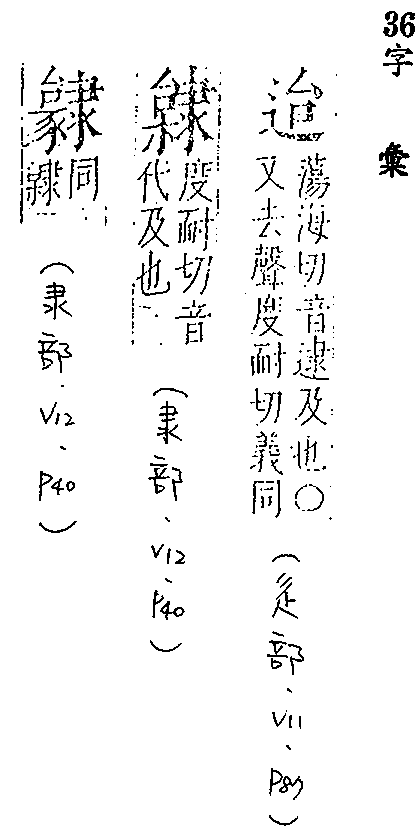 36字彙
迨
蕩海切音逮及也○
又去聲度耐切義同
(辵部、V11、P89)
度耐切音
代及也
(隶部、V12、P40)
同
(隶部、V12、P40)